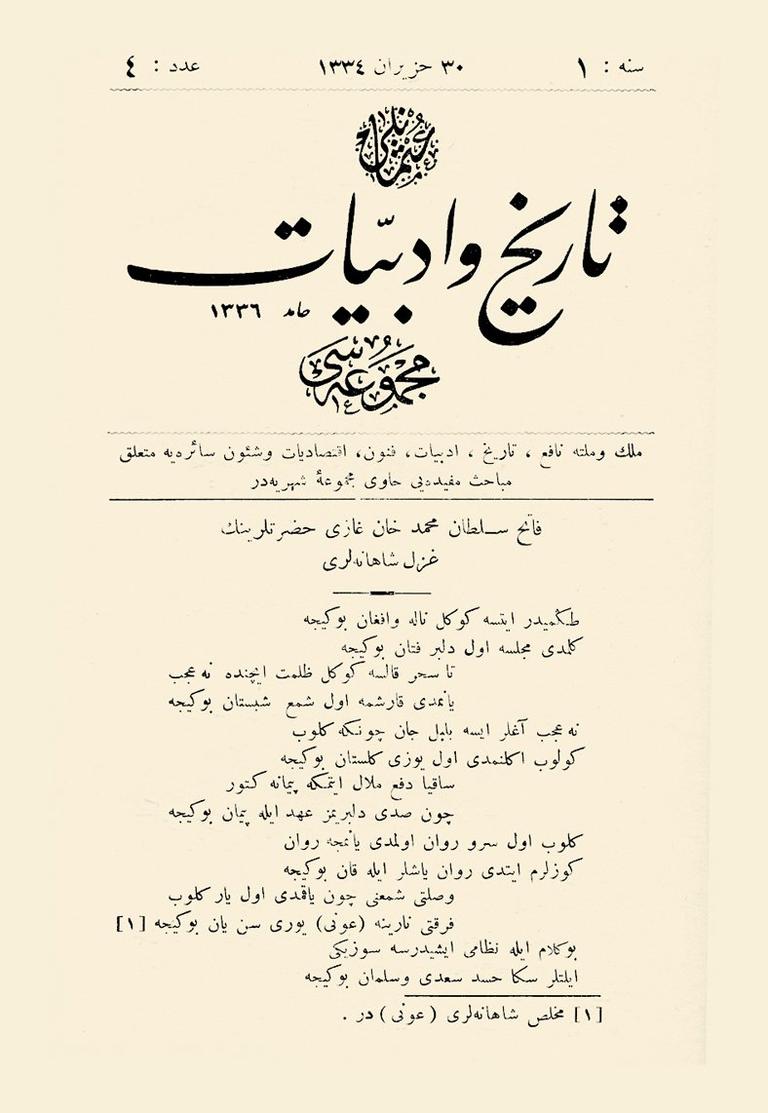 سنه : ١ ٣٠ حزيران ١٣٣٤ عدد : ٤
عثمانلى
تاريخ وادبيّات
حامد ١٣٣٦
مجموعه سى
ملك وملته نافع ، تاريخ ، ادبيات، فنون، اقتصاديات وشئون سائره‌يه متعلق
مباحث مفيده‌يى حاوى مجموعۀ شهريه‌در
فاتح سـلطان محمد خان غازى حضرتلرينك
غزل شاهانه‌لرى
طڭميدر ايتسه كوكل ناله وافغان بوكيجه
كلمدى مجلسه اول دلبر فتان بوكيجه
تا سحر قالسه كوكل ظلمت ايچنده نه عجب
يانمدى قارشمه اول شمع شبستان بوكيجه
نه عجب آغلر ايسه بلبل جان چونكه كلوب
كولوب اكلنمدى اول يوزى كلستان بوكيجه
ساقيا دفع ملال ايتمكه پيمانه كتور
چون صدى دلبريمز عهد ايله پيمان بوكيجه
كلوب اول سرو روان اولمدى يانمجه روان
كوزلرم ايتدى روان ياشلر ايله قان بوكيجه
وصلتى شمعنى چون ياقمدى اول يار كلوب
فرقتى نارينه (عونى) يورى سن يان بوكيجه [١]
بوكلام ايله نظامى ايشيدرسه سوزيكى
ايلتلر سكا حسد سعدى وسلمان بوكيجه
[١] مخلص شاهانه‌لرى (عونى) در .